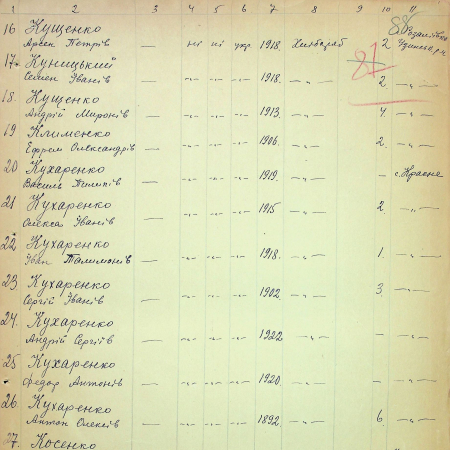 1 2 3 4 5 6 7 8 9 10 11
16 Кущенко
Арсен Петрів — ні ні укр 1918. Хлібороб 2
17. Куницький
Семен Іванів — -"- -"- -"- 1918. -"- 2 -"-
18. Кущенко
Андрій Миронів — -"- -"- -"- 1913. -"- 4 -"-
19 Клименко
Ефрем Олександрів — -"- -"- -"- 1906. -"- 2. -"-
20 Кухаренко
Василь — -"- -"- -"- 1919. -"- — с. Красне
21 Кухаренко
Олекса Іванів — -"- -"- -"- 1915 -"- 2 -"-
22 Кухаренко
Іван Талимонів — -"- -"- -"- 1918. -"- 1. -"-
23 Кухаренко
Сергій Іванів — -"- -"- -"- 1902 -"- 3. -"-
24. Кухаренко
Андрій Сергіїв — -"- -"- -"- 1922 -"- — -"-
25 Кухаренко
Федор Антонів — -"- -"- -"- 1920. -"- — -"-
26 Кухаренко
Антон Олексів — -"- -"- -"- 1892. -"- 6. -"-
27. Косенко